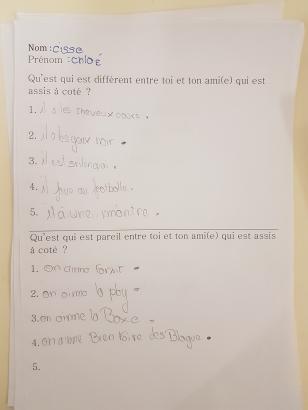 Nom : cisse
Prénom : chloé
Qu'est qui est différent entre toi et ton ami(e) qui est
assis à coté ?
1. il a les cheveux cours .
2. il a les yeux noir .
3. il est en
4. il joue au footballe .
5. il à une montre .
Qu'est qui est pareil entre toi et ton ami(e) qui est assis
à coté ?
1. on aime
2. on aime la play
3. on aime la Boxe
4. on aime Bien faire des Blague .
5.